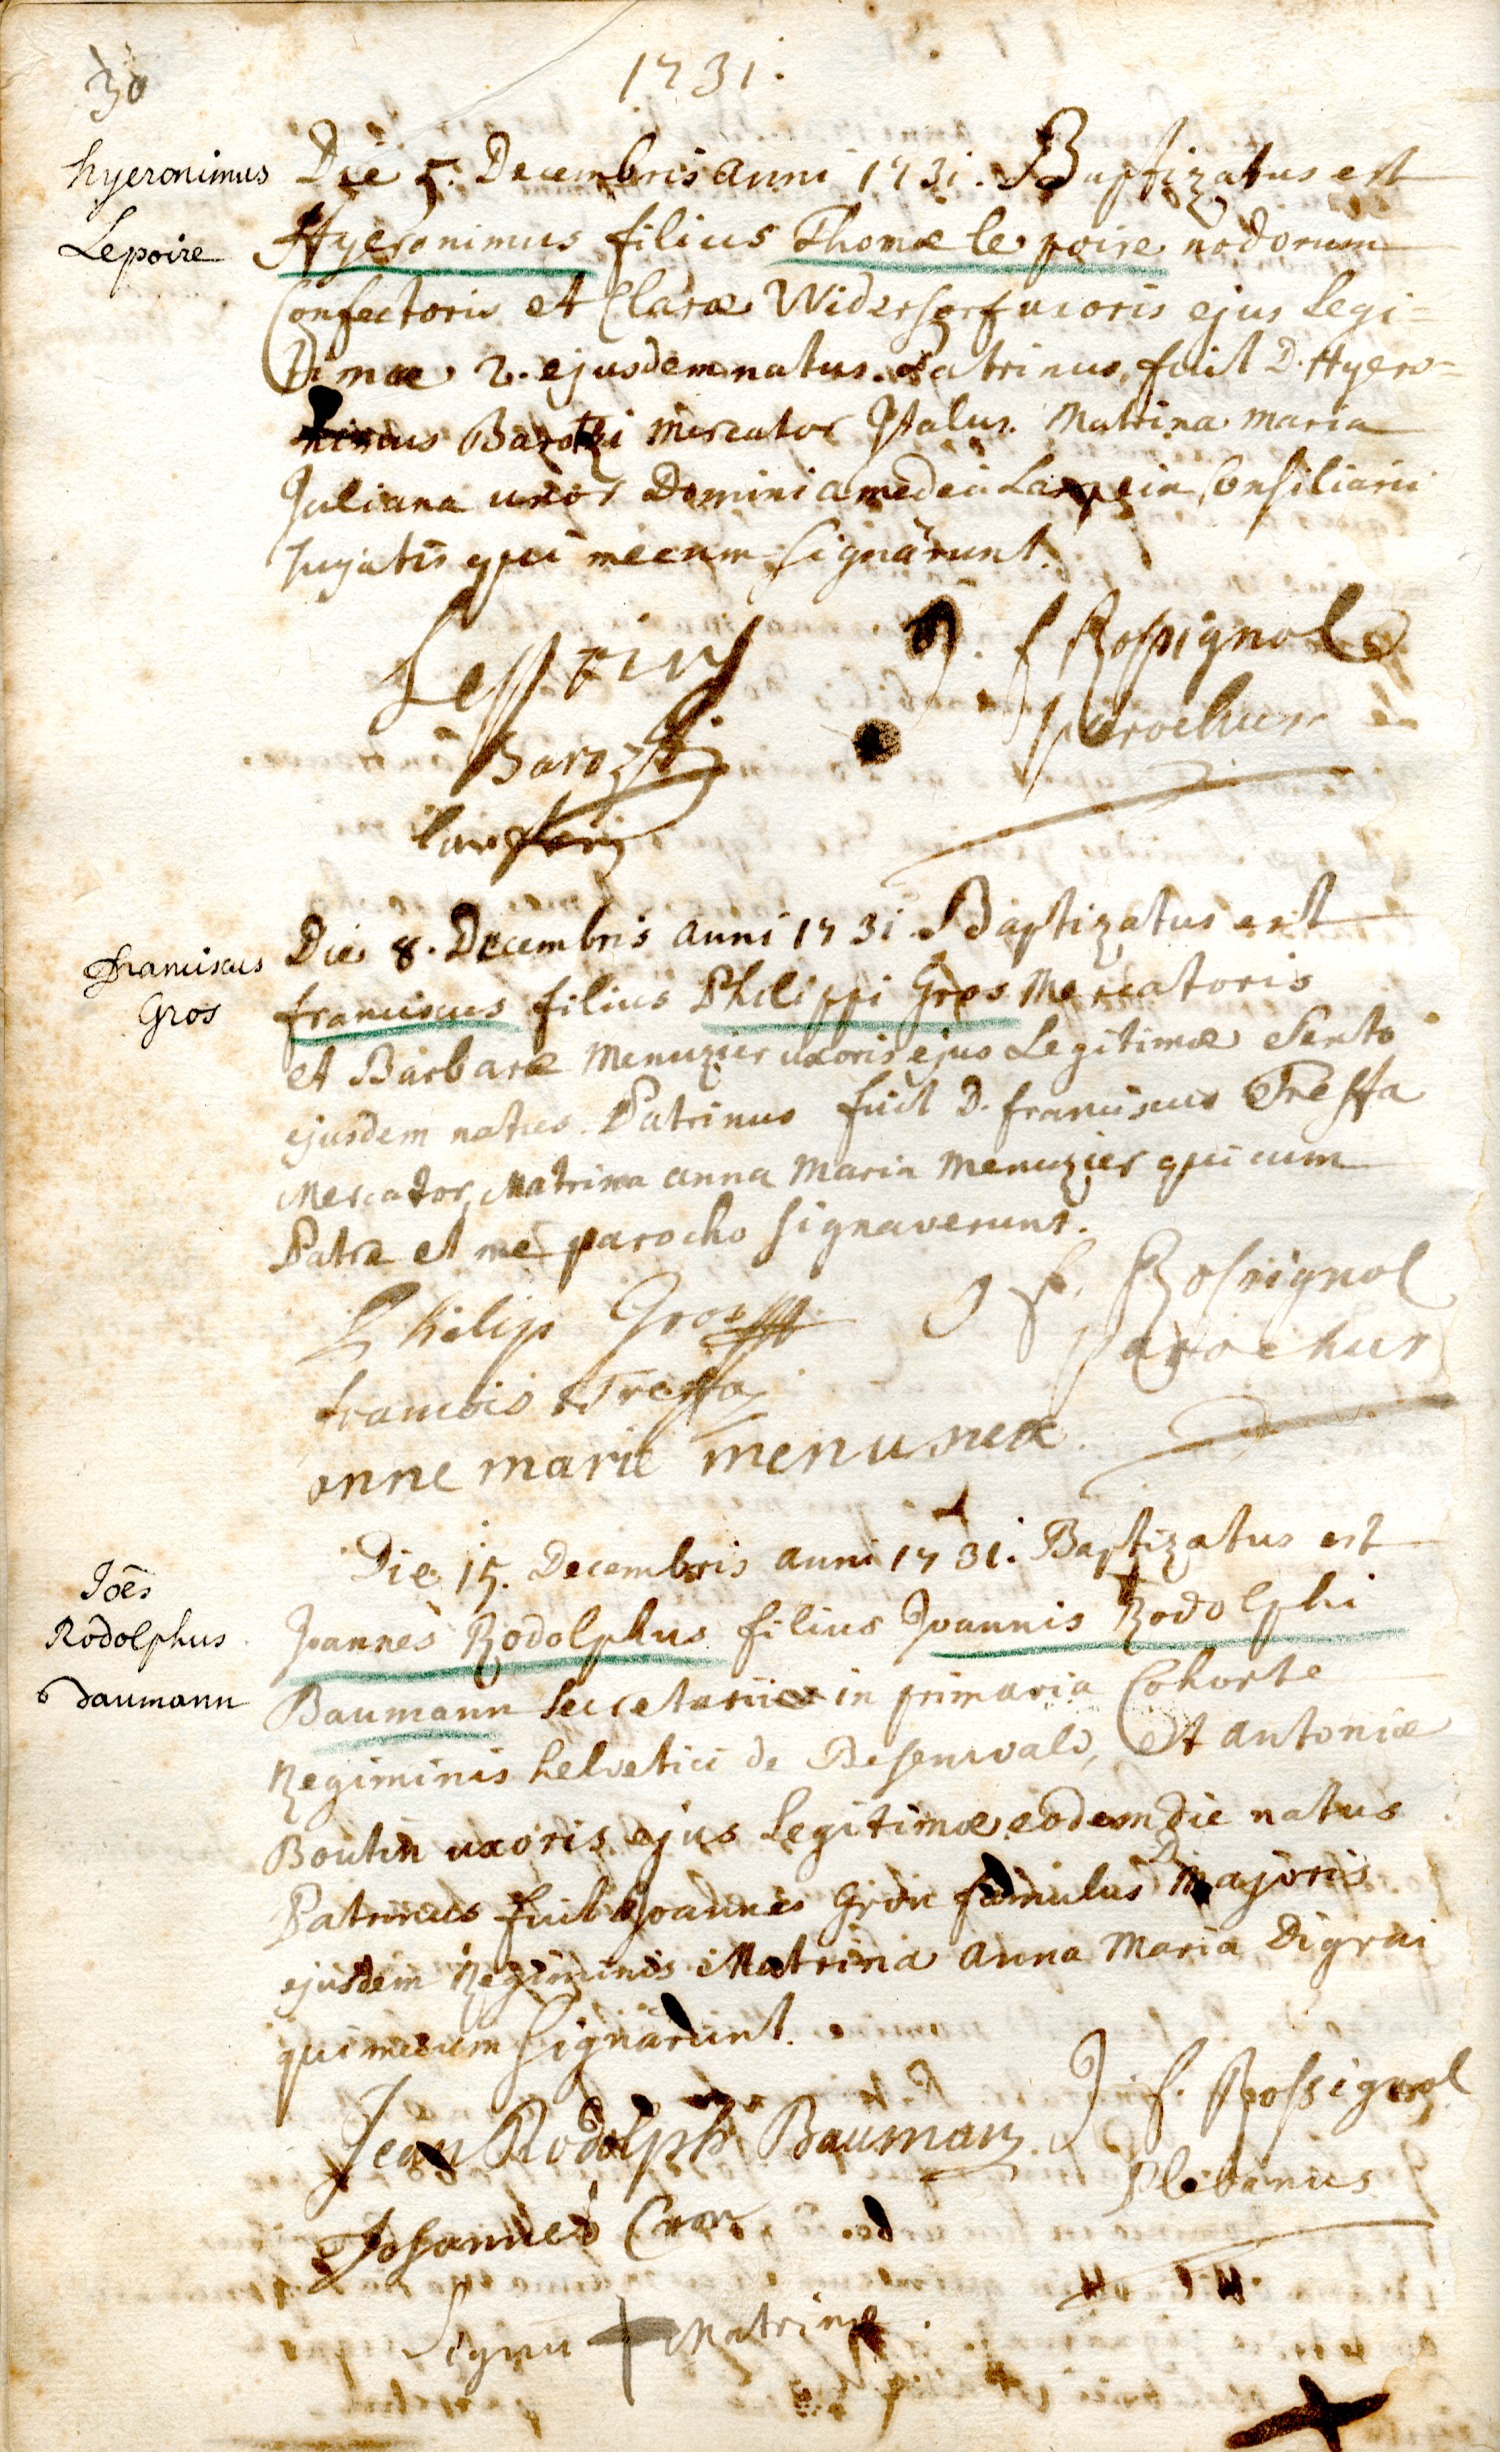 30
1731.
hyeronimus
Lepoire
Die 5. Decembris anni 1731. Baptizatus est
Hyeronimus filius Thomæ le poire nodorum
Confectoris et Claræ uxoris ejus Legi=
timæ 2. ejusdem natus. Patrinus fuit D. Hyero=
nimus Barotzi Mercator Italus. Matrina Maria
Juliana uxor Domini amedei Consiliarii
hujatis qui mecum signârunt.
J. f Rossignol
parochus
Barozzi
franciscus
Gros
Die 8. Decembris anni 1731. Baptizatus est
franciscus filius Philippi Gros Mercatoris
et Barbaræ Menuzier uxoris ejus Legitimæ sexto
ejusdem natus. Patrinus fuit D. franciscus Tressa
Mercator, Matrina anna Maria Menuzier qui cum
Patre et me parocho signaverunt.
Philip Gross
J f. Rossignol
parochus
francois Tressa
anne marie menusier
Joēs
Rodolphus
Baumann
Die 15. Decembris anni 1731. Baptizatus est
Joannes Rodolphus filius Joannis Rodolphi
Baumann secretarii in primaria Cohorte
Regiminis helvetici de Besenvald, et antoniæ
Boutin uxoris ejus Legitimæ eodem die natus
Patrinus fuit Joannes Gron famulus D. Majoris
ejusdem Regiminis Matrina anna Maria Digrai
qui mecum signârunt.
J f. Rossignol
Plebanus
Jean Rodolph Bauman
Johannes
Signu + Matrinæ.